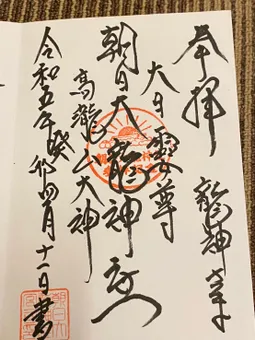 奉拝 龍神峯
大日靈尊
朝日大龍神
高龍大神
令和五年癸卯四月十一日書